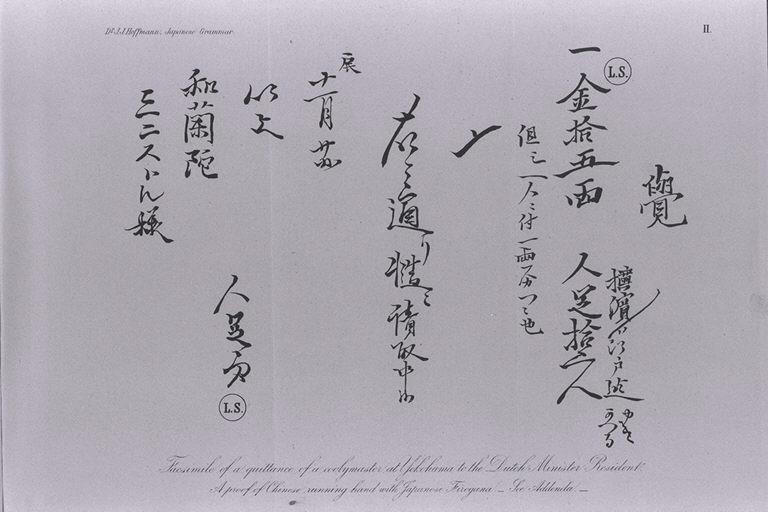 Dr. J. J. Hoffmann, Japanese Grammar.
II.
覺
一金拾五両 人足拾二人
L.S.
横濱ゟ江戸迄
但シ一人ニ付一両一分ツヽ也
右之通り慥ニ請取申候
以上
展
十一月廿
和蘭陀
ミニストル様
人足方
L.S.
Facsimile of a quittance of a coolymaster at Yokohama to the Dutch Minister Resident.
A proof of Chinese running hand with Japanese Firogana _ See Addenda _